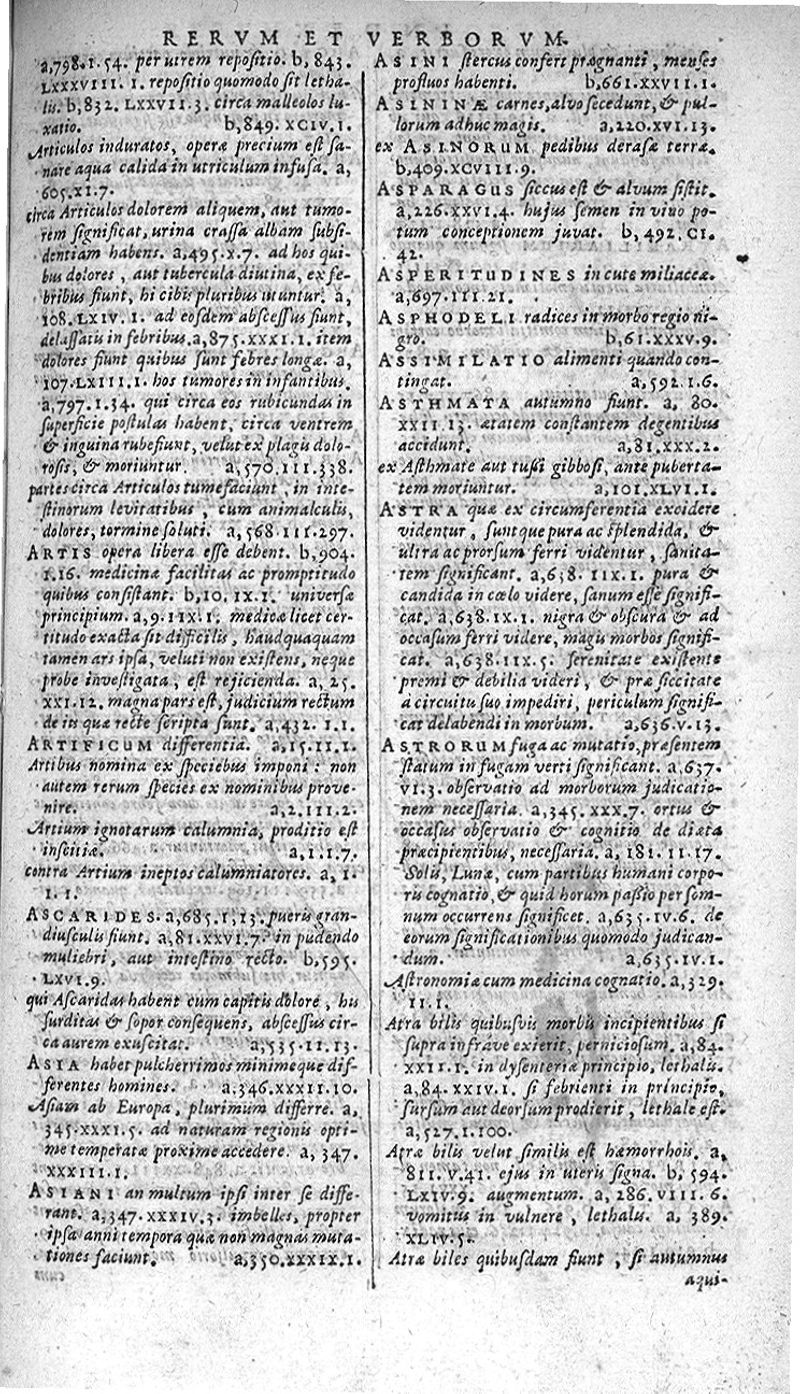 RERVM ET VERBORVM.
a,798.1.54. per utrem repositio. b, 843.
LXXXVIII. 1. repositio quomodo sit letha-
lis. b,832. LXXVII.3. circa malleolos lu-
xatio. b,849. XCIV.1.
Articulos induratos, operæ precium est sa-
nare aqua calida in utriculum infusa. a,
605.XI.7.
circa Articulos dolorem aliquem, aut tumo-
rem significat, urina crassa albam subsi-
dentiam habens. a,495.X.7. ad hos qui-
bus dolores, aut tubercula diutina, ex fe-
bribus fiunt, hi cibis pluribus utuntur. a,
108.LXIV.1. ad eosdem abscessus fiunt,
delassatis in febribus.a,875.XXXI.1. item
dolores fiunt quibus sunt febres longæ. a,
107.LXIII.1. hos tumores in infantibus.
a,797.1.34. qui circa eos rubicundas in
superficie postulas habent, circa ventrem
& inguina rubefiunt, velut ex plagis dolo-
rosis, & moriuntur. a,570.III.338.
partes circa Articulos tumefaciunt, in inte-
stinorum levitatibus, cum animalculis,
dolores, tormine soluti. a,568.III.297.
ARTIS opera libera esse debent. b,904.
1.16. medicinæ facilitas ac promptitudo
quibus consistant. b,10.IX.1. universæ
principium. a,9.IIX.1. medicæ licet cer-
titudo exacta sit difficilis, haudquaquam
tamen ars ipsa, veluti non existens, neque
probe investigata, est rejicienda. a, 25.
XXI.12. magna pars est, judicium rectum
de iis quæ recte scripta sunt. a,432.1.1.
ARTIFICUM differentia. a,15.II.1.
Artibus nomina ex speciebus imponi: non
autem rerum species ex nominibus prove-
nire. a,2.III.2.
Artium ignotarum calumnia, proditio est
inscitiæ. a,1.1.7.
contra Artium ineptos calumniatores. a, 1.
1.1.
ASCARIDES. a,685.1,13. pueris gran-
diusculis fiunt. a,81.XXVI.7. in pudendo
muliebri, aut intestino recto. b,595.
LXVI.9.
qui Ascaridas habent cum capitis dolore, his
surditas & sopor consequens, abscessus cir-
ca aurem exuscitat. a,535.II.13.
ASIA habet pulcherrimos minimeque dif-
ferentes homines. a,346.XXXII.10.
Asiam ab Europa, plurimum differre. a,
345.XXXI.5. ad naturam regionis opti-
me temperatæ proxime accedere. a, 347.
XXXIII.1.
ASIANI an multum ipsi inter se diffe-
rant. a,347.XXXIV.3. imbelles, propter
ipsa anni tempora quæ non magnas muta-
tiones faciunt. a,350.XXXIX.1.
ASINI stercus confert prægnanti, menses
profluos habenti. b,661.XXVII.1.
ASININÆ carnes, alvo secedunt, & pul-
lorum adhuc magis. a,220.XVI.13.
ex ASINORUM pedibus derasæ terræ.
b,409.XCVIII.9.
ASPARAGUS siccus est & alvum sistit.
a,226.XXVI.4. hujus semen in vino po-
tum conceptionem juvat. b, 492.CI.
42.
ASPERITUDINES in cute miliaceæ.
a,697.III.21.
ASPHODELI radices in morbo regio ni-
gro. b,61.XXXV.9.
ASSIMILATIO alimenti quando con-
tingat. a,592.1.6.
ASTHMATA autumno fiunt. a, 80.
XXII.13. ætatem constantem degentibus
accidunt. a,81.XXX.2.
ex Asthmate aut tussi gibbosi, ante puberta-
tem moriuntur. a,101.XLVI.1.
ASTRA quæ ex circumferentia excidere
videntur, suntque pura ac splendida, &
ultra ac prorsum ferri videntur, sanita-
tem significant. a,638. IIX.1. pura &
candida in cœlo videre, sanum esse signifi-
cat. a,638.IX.1. nigra & obscura & ad
occasum ferri videre, magis morbos signifi-
cat. a,638.IIX.5. serenitate existente
premi & debilia videri, & præ siccitate
a circuitu suo impediri, periculum signifi-
cat delabendi in morbum. a,636.V.13.
ASTRORUM fuga ac mutatio, præsentem
statum in fugam verti significant. a,637.
VI.3. observatio ad morborum judicatio-
nem necessaria. a,345.XXX.7. ortus &
occasus observatio & cognitio de diæta
præcipientibus, necessaria. a, 181.II.17.
Solis, Lunæ, cum partibus humani corpo-
ris cognatio, & quid horum passio per som-
num occurrens significet. a,635.IV.6. de
eorum significationibus quomodo judican-
dum. a,635.IV.1.
Astronomiæ cum medicina cognatio. a,329.
II.1.
Atra bilis quibusvis morbis incipientibus si
supra infrave exierit, perniciosum. a,84.
XXII.1. in dysenteriæ principio, lethalis.
a,84.XXIV.1. si febrienti in principio,
sursum aut deorsum prodierit, lethale est.
a,527.1.100.
Atræ bilis velut similis est hæmorrhois. a,
811.V.41. ejus in uteris signa. b, 594.
LXIV.9. augmentum. a, 286.VIII.6.
vomitus in vulnere, lethalis. a, 389.
XLIV.5.
Atræ biles quibusdam fiunt, si autumnus
aqui-